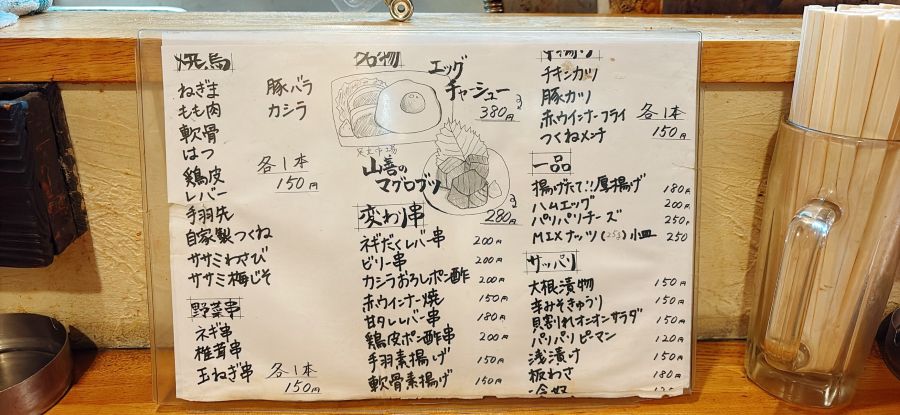 焼鳥
ねぎま
もも肉
軟骨
はつ
鶏皮
レバー
手羽先
自家製つくね
ササミわさび
ササミ梅じそ
豚バラ
カシラ
各1本
150円
野菜串
ネギ串
椎茸串
玉ねぎ串 各1本
150円
エッグ
チャーシュー
380円
足立市場
山善の
マグロブツ
280円
変わり串
ネギだくレバー串 200円
ビリー串 200円
カシラおろしポン酢 200円
赤ウインナー焼 150円
甘タレレバー串 180円
鶏皮ポン酢串
手羽素揚げ 150円
軟骨素揚げ 150円
チキンカツ
豚カツ
赤ウインナーフライ
つくねメンチ
各1本
150円
一品
揚げたて!!厚揚げ 180円
ハムエッグ 200円
パリパリチーズ 250円
MIXナッツ 小皿 250
サッパリ
大根漬物 150円
辛みそきゅうり 150円
貝割れオニオンサラダ 150円
パリパリピーマン 120円
浅漬け 150円
板わさ 180円